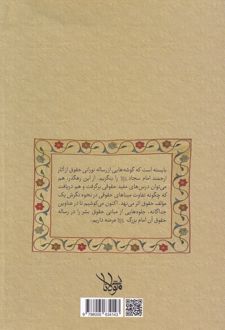 بایسته است که گوشه‌هایی از رساله نورانی حقوق از آثار
ارجمند امام سجاد را بنگریم. از این رهگذر، هم
می‌توان درس‌های مفید حقوقی برگرفت و هم دریافت
که چگونه تفاوت مبناهای حقوقی در نحوه نگرش یک
مؤلف حقوق اثر می‌نهد. اکنون می‌کوشیم تا در عناوین
جداگانه، جلوه‌هایی از مبانی حقوق بشر را در رساله
حقوق آن امام بزرگ عرضه داریم.